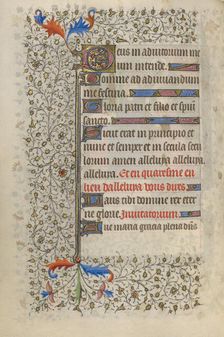 Deus in adiutorium
meum intende.
Domine ad adiuuandum
me festina.
Gloria patri et filio et spiui
sancto.
Sicut erat in principio et
nunc et semper et in secula secu
lorum amen alleluya alleluya.
alleluya. Et en quaresme en
lieu dalleluya vous dires
Laus tibi domine rex eter
ne glorie. Inuitatorium.
Aue maria gracia plena dns